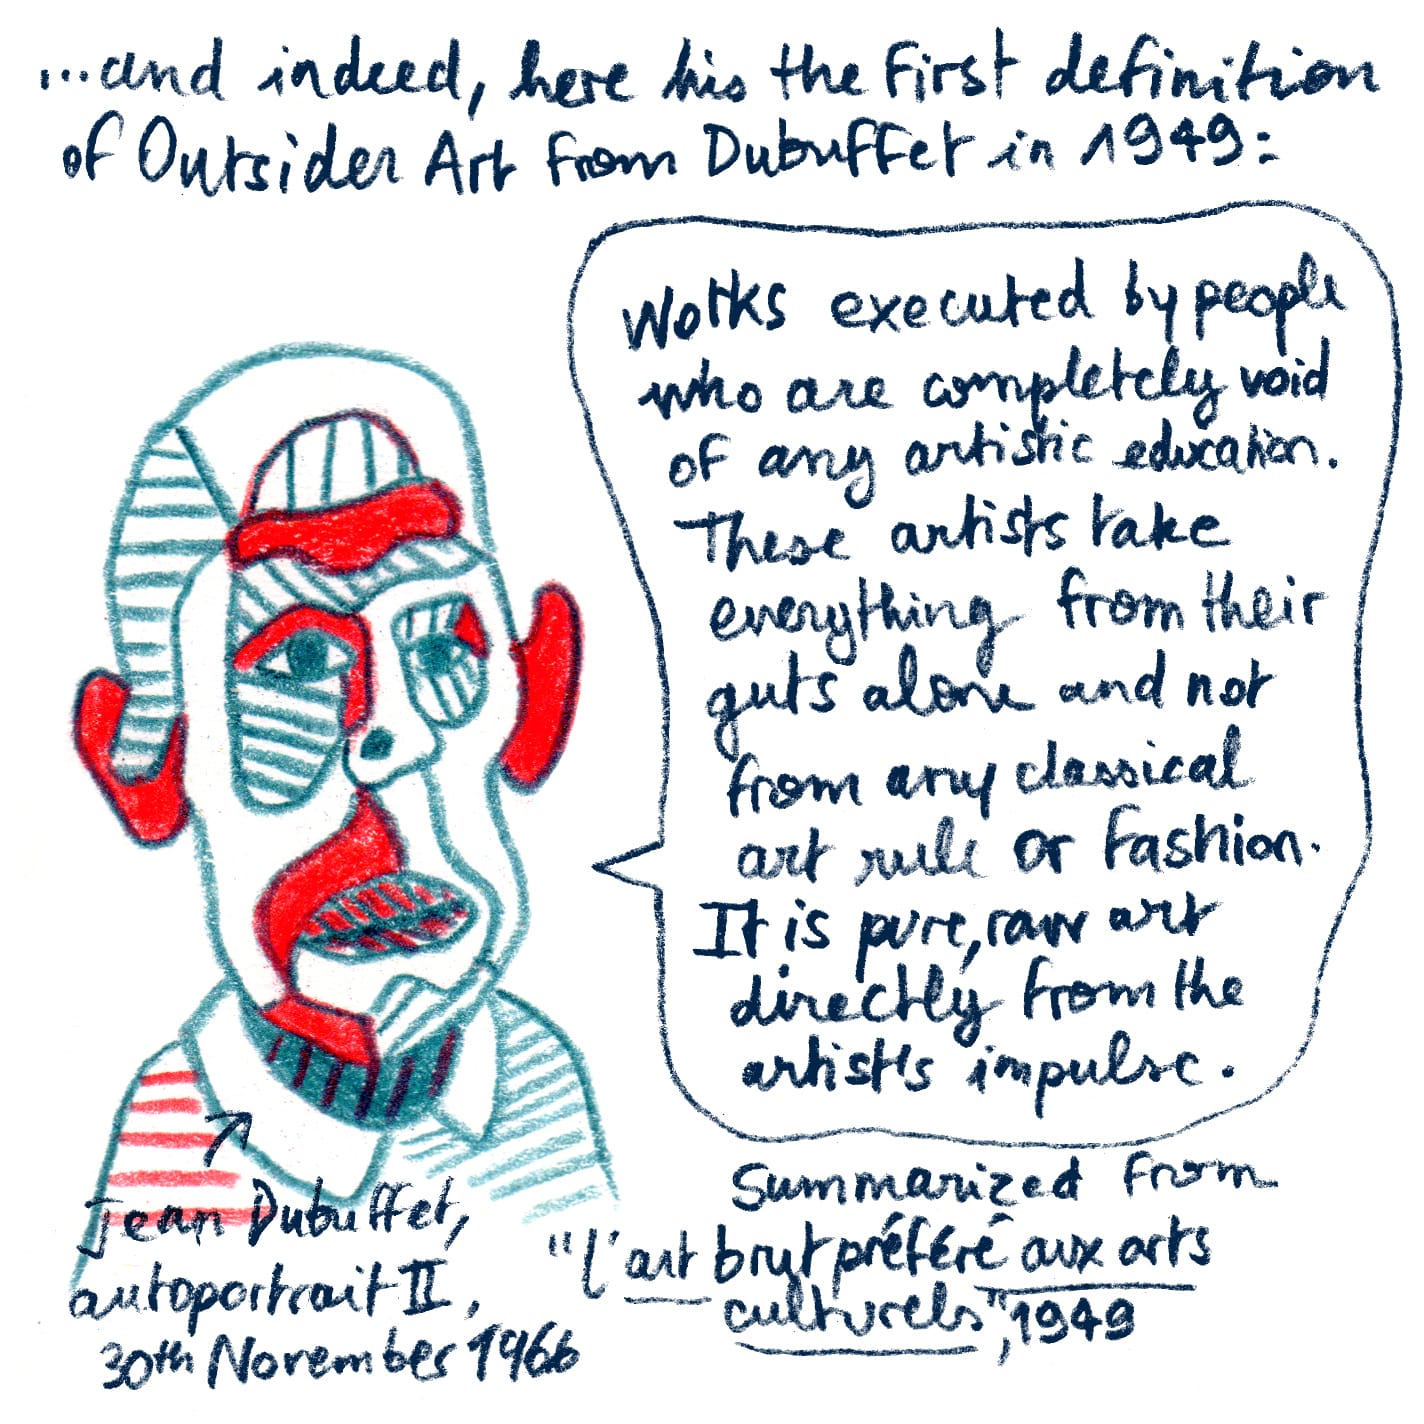 ...and indeed, here his the first definition
of Outsider Art from Dubuffet in 1949:
Works executed by people
who are completely void
of any artistic education.
These artists take
everything from their
guts alone and not
from any classical
art rule or fashion.
It is pure, raw art
directly from the
artist's impulse.
Summarized from
"l'art brut préféré aux arts
culturels", 1949
Jean Dubuffet,
autoportrait II,
30th November 1966